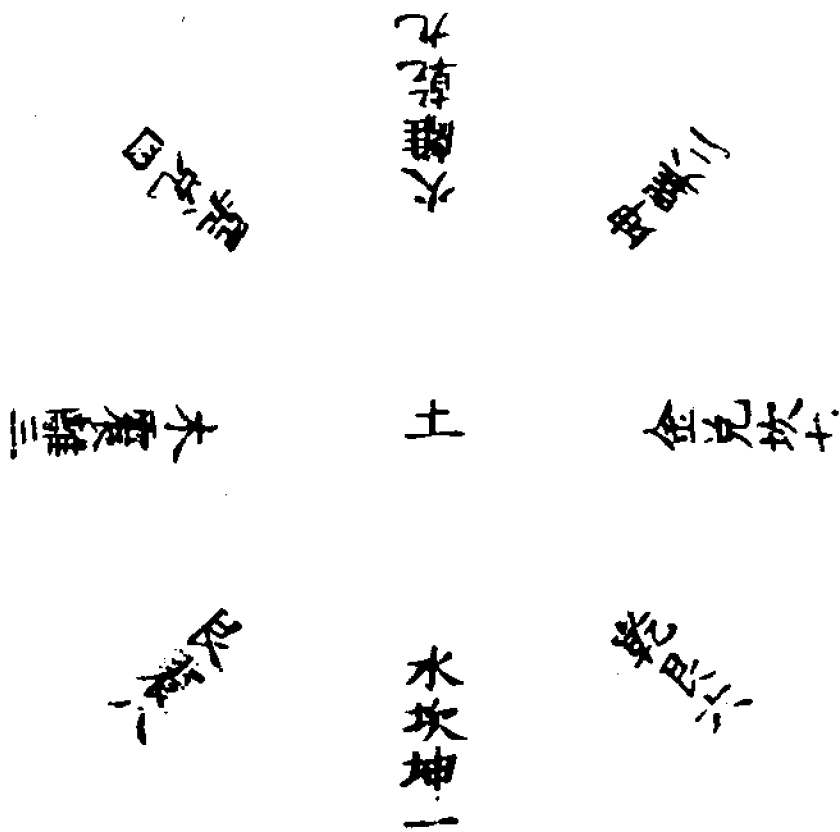 火離乾九
坤巽二
金兌坎七
乾艮六
水坎坤一
艮震八
木震離三
巽兌四
土